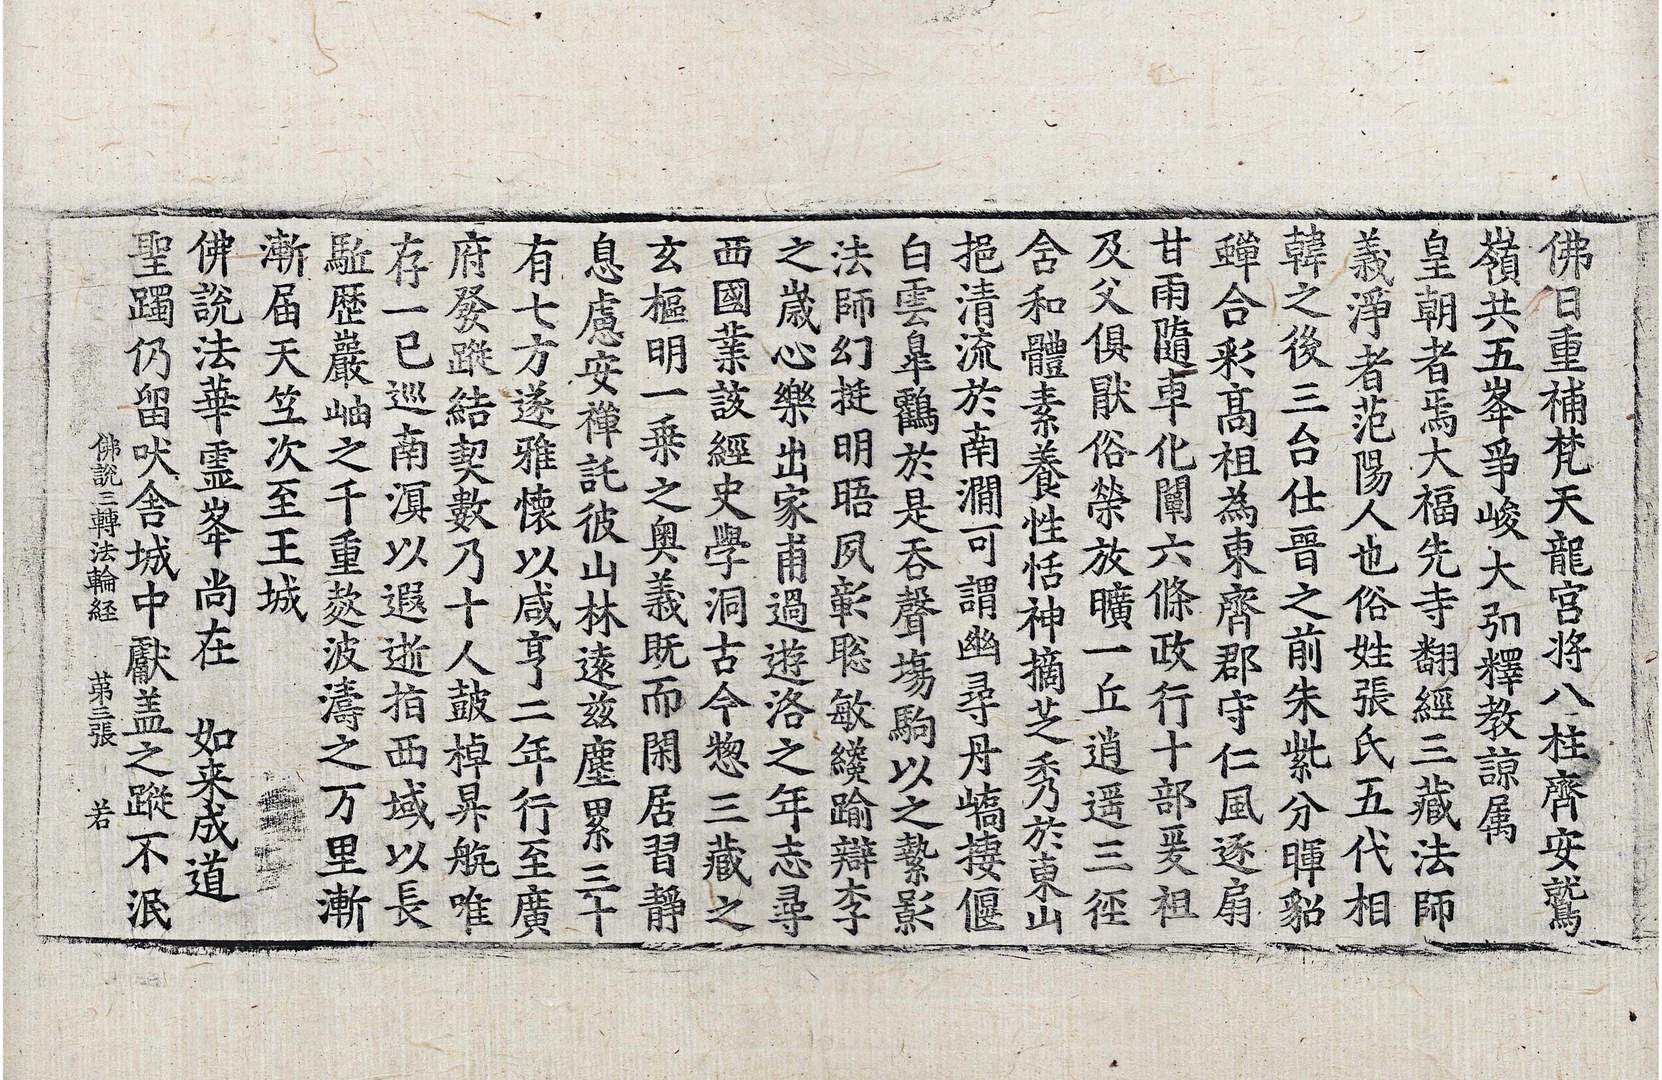 佛日重補梵天龍宮将八柱齊安鷲
嶺共五峯爭峻大弘釋教諒属
皇朝者焉大福先寺翻經三藏法師
義淨者范陽人也俗姓張氏五代相
韓之後三台仕晉之前朱紫分暉貂
蟬合彩髙祖為東齊郡守仁風逐扇
甘雨隨車化闡六條政行十部爰祖
及父俱猒俗榮放曠一丘逍遥三徑
含和體素養性恬神摘芝秀於東山
挹清流於南澗可謂幽尋丹嶠捿偃
白雲臯鶴於是吞聲塲駒以之縶影
法師幻挺明晤夙彰聡敏纔踰辯李
之歳心樂出家甫過遊洛之年志尋
西國業該經史學洞古今惣三藏之
玄樞明一乗之奥義既而閑居習靜
息慮安禪託彼山林遠兹塵累三十
有七方遂雅懷以咸亨二年行至廣
府發蹤結契數乃十人鼓棹昇航唯
存一已巡南溟以遐逝拍西域以長
駈歴巖岫之千重㴠波濤之万里漸
漸届天竺次至王城
佛說法華霊峯尚在　如来成道
聖躅仍留吠舎城中獻盖之蹤不泯
佛說三轉法輪経　苐三張　若